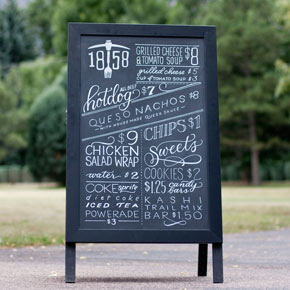 1858
GRILLED CHEESE
& TOMATO SOUP $8
grilled cheese $5
CUP of TOMATO SOUP $3
hotdog ALL BEEF $7
QUESO NACHOS $8
WITH HOUSE MADE QUESO SAUCE
$9
CHICKEN
SALAD WRAP
water $2
COKE sprite
diet coke
ICED TEA
POWERADE
$3
CHIPS $1
Sweets
COOKIES $2
$1.25 candy bars
KASHI
TRAIL MIX
BAR $1.50